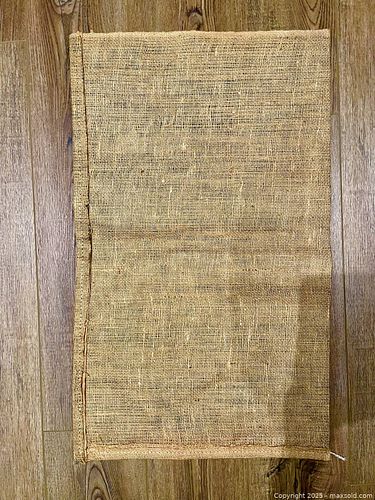 Copyright 2025 - maxsold.com